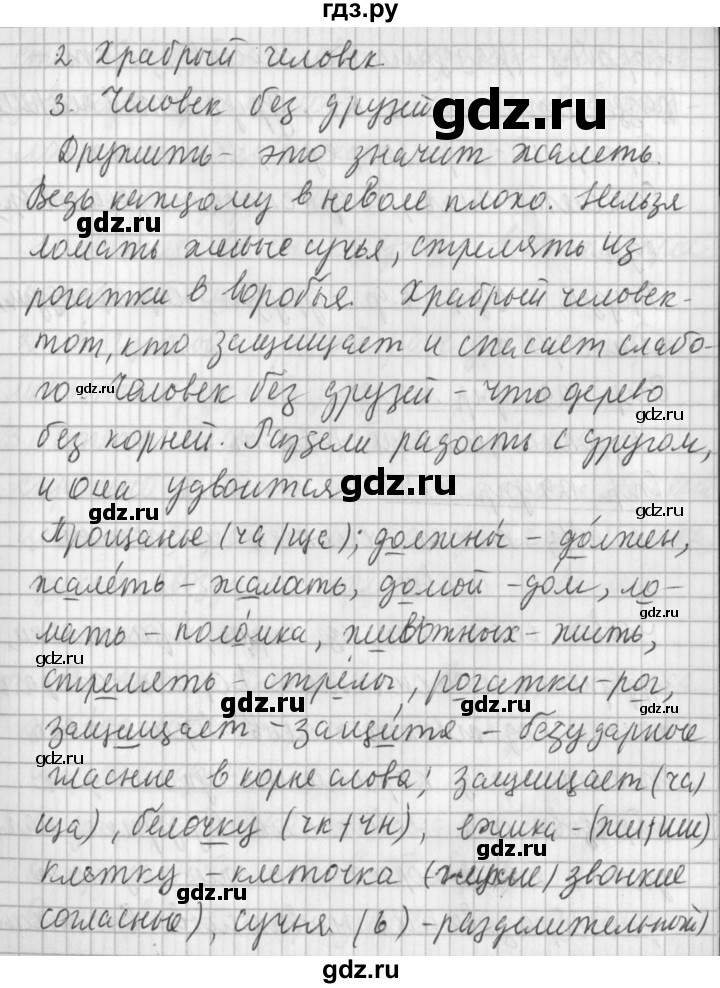 гдз.ру
2 Храбрый человек
3. Человек без друзей
gdz.ru
Дружить - это значит жалеть.
Ведь каждому в неволе плохо. Нельзя
gdz.ru
ломать живые сучья, стрелять из
рогатки в воробья. Храбрый человек -
gdz.ru
тот, кто защищает и спасает слабо-
го. Человек без друзей - что дерево
gdz.ru gdz.ru
без корней. Раздели радость с другом,
и она удвоится
gdz.ru
gdz.ru
Прощанье (ча/ща); должны́ - до́лжен,
gdz.ru
жале́ть - жалость, домой - до́м, ло-
мать - поло́мка, животных - жить,
gdz.ru
стрелять - стре́лы, рогатки - рог,
gdz.ru gdz.ru
защищает - защи́тя - безударные
gdz.ru
гласные в корне слова; защищает (ча/
ща), белочку (чк/чн), ежика - (жи/ши)
gdz.ru gdz.ru
клетку - клеточка (глухие/звонкие
gdz.ru
согласные), сучья (ь) - разделительный)
gdz.ru
gdz.ru